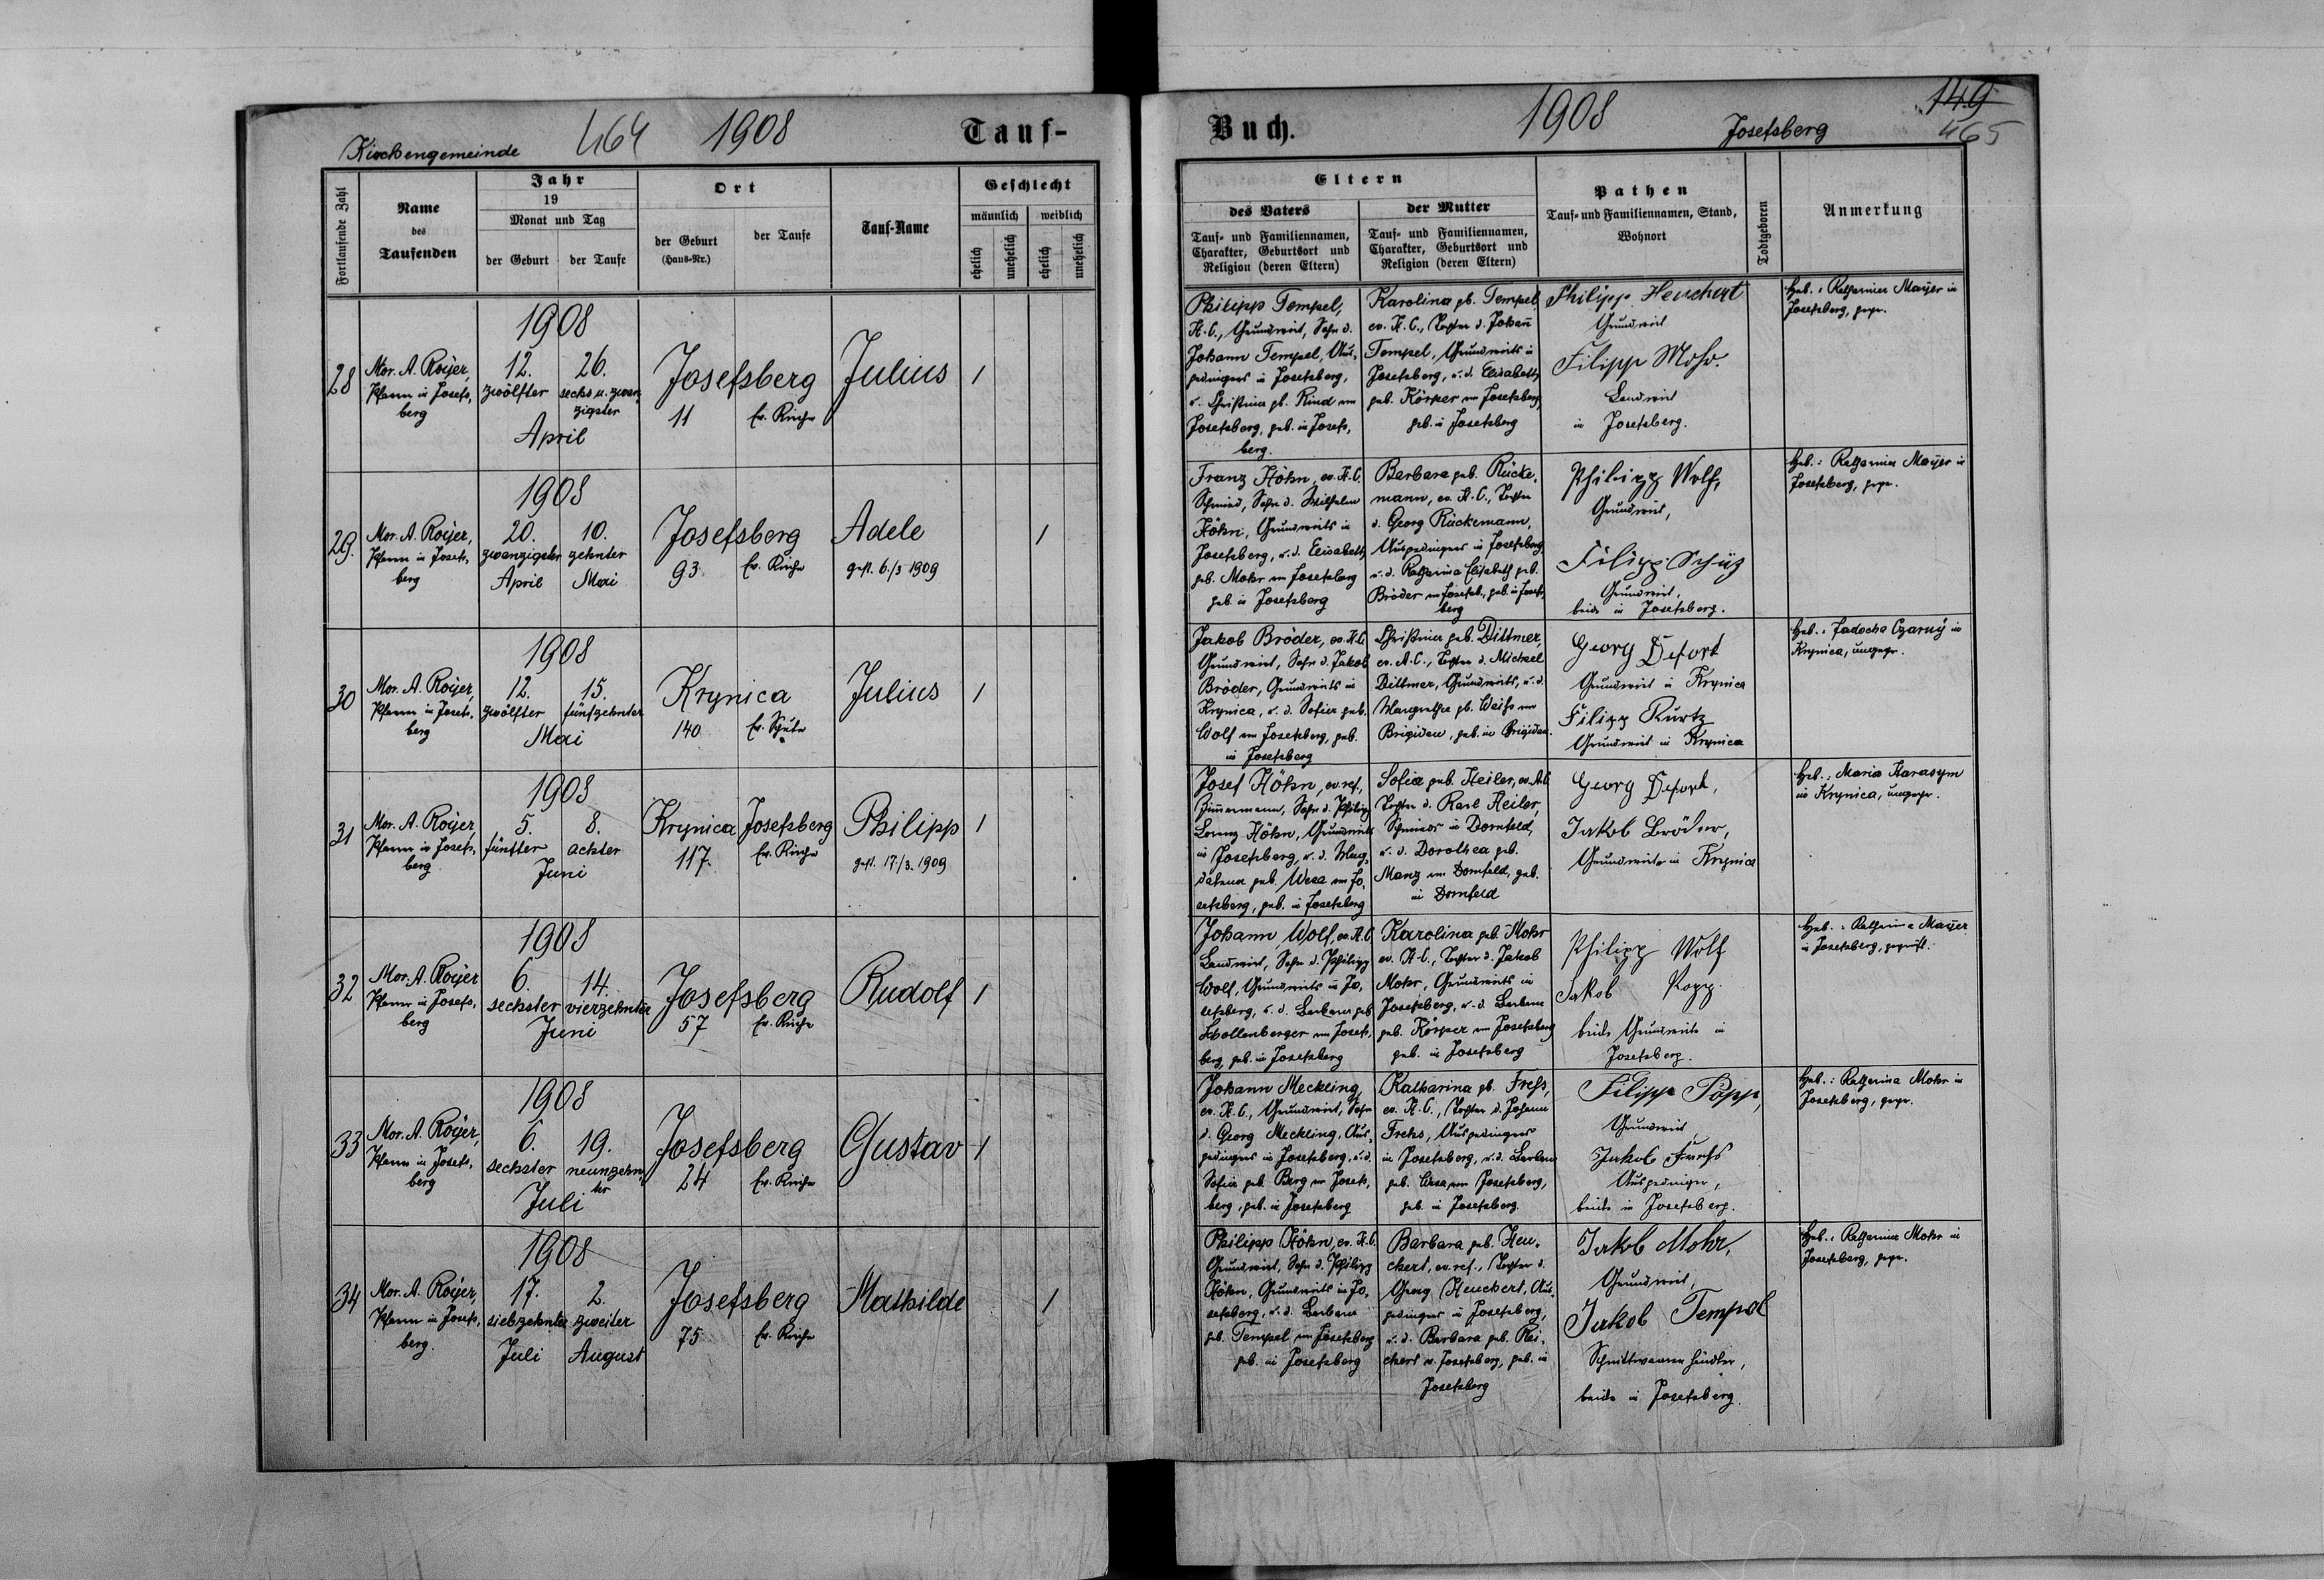 Kirchengemeinde 464 1908 Tauf-
Fortlaufende Zahl
Name
des
Taufenden
Jahr
19
Monat und Tag
der Geburt
der Taufe
Ort
der Geburt
(Haus-Nr.)
der Taufe
Tauf-Name
Geschlecht
männlich
weiblich
ehelich
unehelich
ehelich
unehelich
28
Mor. A. Royer,
Pfarrer in Josefs-
berg
1908
12. 26.
zwölfter sechs u. zwan-
zigster
April
Josefsberg
11 Ev. Kirche
Julius
1
29.
Mor. A. Royer,
Pfarrer in Josefs-
berg
1908
20. 10.
zwanzigster zehnter
April Mai
Josefsberg
93 Ev. Kirche
Adele
gest. 6./3 1909
1
30
Mor. A. Royer,
Pfarrer in Josefs-
berg
1908
12. 15.
zwölfter fünfzehnter
Mai
Krynica
140 Ev. Schule
Julius
1
31
Mor. A. Royer,
Pfarrer in Josefs-
berg
1908
5. 8.
fünfter achter
Juni
Krynica Josefsberg
117. Ev. Kirche
Philipp
gest. 17/3. 1909
1
32
Mor. A. Royer
Pfarrer in Josefs-
berg
1908
6. 14.
sechster vierzehnter
Juni
Josefsberg
57 Ev. Kirche
Rudolf
1
33
Mor. A. Royer,
Pfarrer in Josefs-
berg
1908
6. 19.
sechster neunzehn-
ter
Juli
Josefsberg
24 Ev. Kirche
Gustav
1
34
Mor. A. Royer,
Pfarrer in Josefs-
berg.
1908
17. 2.
siebzehnter zweiter
Juli August
Josefsberg
75 Ev. Kirche
Mathilde
1
Buch. 1908 Josefsberg 149
465
Eltern
des Vaters
Tauf- und Familiennamen,
Charakter, Geburtsort und
Religion (deren Eltern)
der Mutter
Tauf- und Familiennamen,
Charakter, Geburtsort und
Religion (deren Eltern)
Pathen
Tauf- und Familiennamen, Stand,
Wohnort
Todtgeboren
Anmerkung
Philipp Tempel,
H. C., Grundwirt, Sohn d.
Johann Tempel, Aus-
gedingers in Josefsberg,
u. Christina gb. Rind von
Josefsberg, geb. in Josefs-
berg.
Karolina gb. Tempel
ev. H. C., Tochter d. Johann
Tempel, Grundwirts in
Josefsberg, u. d. Elisabeth
geb. Körper von Josefsberg,
geb. in Josefsberg
Philipp Heuchert
Grundwirt
Filipp Mohr.
Landwirt
in Josefsberg.
Heb.: Katharina Mayer in
Josefsberg, gepr.
Franz Höhn, ev. H. C.
Schmied, Sohn d. Wilhelm
Höhn, Grundwirts in
Josefsberg, u. d. Elisabeth
geb. Mohr von Josefsberg
geb. in Josefsberg
Barbara geb. Rücke-
mann, ev. H. C., Tochter
d. Georg Rückemann,
Ausgedingers in Josefsberg
u. d. Katharina Elisabeth geb.
Bröder von Josefsb., geb. in Josefs-
berg
Philipp Wolf,
Grundwirt,
Filipp Schütz
Grundwirt,
beide in Josefsberg.
Heb.: Katharina Mayer in
Josefsberg, gepr.
Jakob Bröder, ev. H. C.
Grundwirt, Sohn d. Jakob
Bröder, Grundwirts in
Krynica, u. d. Sofia geb.
Wolf von Josefsberg, geb.
in Josefsberg
Christina geb. Dittmer,
ev. A. C., Tochter d. Michael
Dittmer, Grundwirts, u. d.
Margaretha gb. Weiss von
Brigidau, geb. in Brigidau.
Georg Defort
Grundwirt in Krynica
Filipp Kurtz
Grundwirt in Krynica
Heb.: Jadocha Czarny in
Krynica, ungepr.
Josef Höhn, ev. ref.,
Zimmermann, Sohn d. Philipp
Lorenz Höhn, Grundwirts
in Josefsberg, u. d. Mag-
dalena geb. von Jo-
sefsberg, geb. in Josefsberg
Sofia geb. Heiler, ev. A. C.
Tochter d. Karl Heiler,
in Dornfeld,
u. d. Dorothea geb.
Manz von Dornfeld, geb.
in Dornfeld
Georg Defort,
Jakob Bröder,
Grundwirte in Krynica
Heb.: Maria Harasym
in Krynica, ungepr.
Johann Wolf, ev. H. C.
Landwirt, Sohn d. Philipp
Wolf, Grundwirts in Jo-
sefsberg, u. d. Barbara geb
Schollenberger von Josefs-
berg, geb. in Josefsberg
Karolina geb. Mohr
ev. H. C., Tochter d. Jakob
Mohr, Grundwirts in
Josefsberg, u. d. Barbara
geb. Körper von Josefsberg
geb. in Josefsberg
Philipp Wolf
Jakob Popp.
beide Grundwirte in
Josefsberg.
Heb.: Katharina Mayer
in Josefsberg, geprüft.
Johann Meckling,
ev. H. C., Grundwirt, Sohn
d. Georg Meckling, Aus-
gedingers in Josefsberg, u. d.
Sofia geb. Berg von Josefs-
berg, geb. in Josefsberg
Katharina gb. Frehs,
ev. H. C., Tochter d. Johann
Frehs, Ausgedingers
in Josefsberg, u. d. Barbara
geb. von Josefsberg,
geb. in Josefsberg.
Filipp Popp,
Grundwirt,
Jakob
Ausgedinger,
beide in Josefsberg.
Heb.: Katharina Mohr in
Josefsberg, gepr.
Philipp Höhn, ev. H. C.
Grundwirt, Sohn d. Philipp
Höhn, Grundwirts in Jo-
sefsberg, u. d. Barbara
geb. Tempel von Josefsberg
geb. in Josefsberg
Barbara geb. Heu-
chert, ev. ref., Tochter d.
Georg Heuchert, Aus-
gedinger in Josefsberg,
u. d. Barbara geb. Rei-
chert v. Josefsberg, geb. in
Josefsberg
Jakob Mohr,
Grundwirt,
Jakob Tempel
Schnittwaren händler,
beide in Josefsberg.
Heb.: Katharina Mohr in
Josefsberg, gepr.